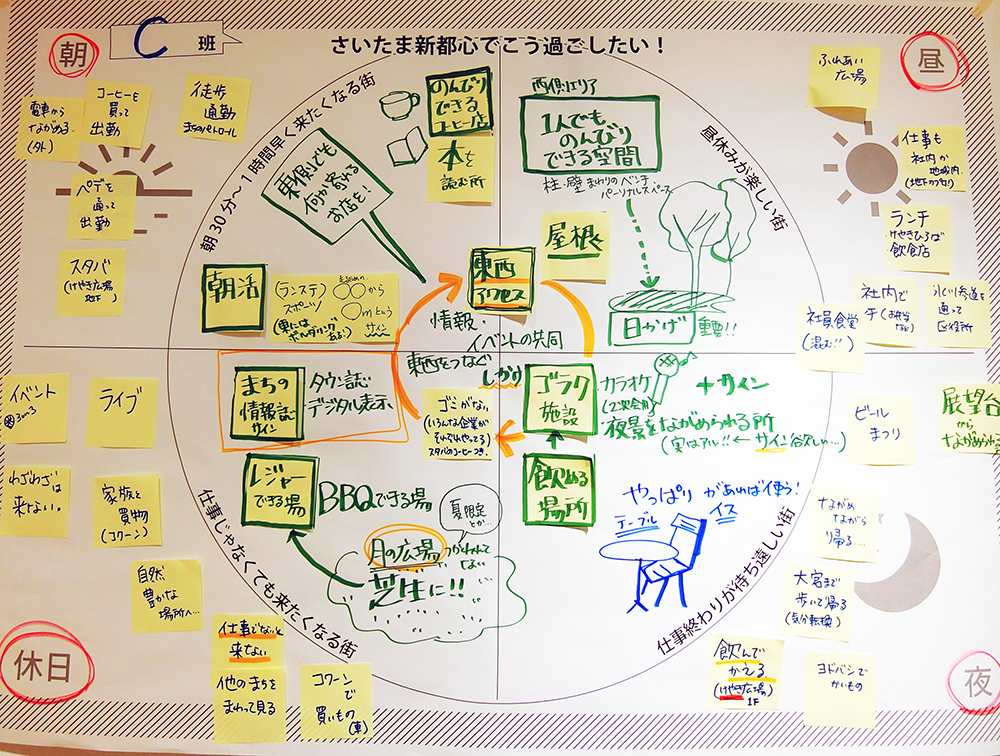 C 班
さいたま新都心でこう過ごしたい！
朝
昼
休日
夜
朝30分～1時間早く来たくなる街
昼休みが楽しい街
仕事じゃなくても来たくなる街
仕事終わりが待ち遠しい街
電車から
ながめる
(夕ト)
コーヒーを
買って
出勤
徒歩
通勤
まちのパトロール
ペデを
通って
出勤
スタバ
(けやき広場
地下)
のんびり
できる
コーヒー店
本を
読む所
東側にも
何か寄れる
お店を！
朝活
(ランステ)
スポーツ
から
mという
サイン
(東には
ボルダリング
ある！)
西側エリア
1人でも、
のんびり
できる空間
柱・壁まわりのベンチ
パーソナルスペース
屋根
日かげ
重要!!
東西
アクセス
情報・
イベントの共同
東西をつなぐ
しかり
ふれあい
広場
仕事も
社内か
地域内。
ランチ
けやきひろば
飲食店
社員食堂
(混む!!)
社内で
氷川参道を
通って
区役所
まちの
情報誌
サイン
タウン誌
デジタル表示
ゴミがない
(いろんな企業が
それぞれやってる)
スタバのコーヒーつき。
ゴラク
施設
カラオケ
(2次会用)
+サイン
夜景をながめられる所
(実はアル!!←サイン欲しい…)
飲める
場所
レジャー
できる場
BBQできる場
夏限定
とか…
月の広場
つかわれて
ない
芝生に!!
やっぱり
テーブル
イス
があれば使う！
イベント
ライブ
わざわざは
来ない。
家族と
買物
(コクーン)
自然
豊かな
場所へ…
仕事でないと
来ない
他のまちを
まわって見る
コクーンで
買いもの
(車)
展望台
から
ながめられる
ビール
まつり
ながめ
ながら
帰る…
大宮まで
歩いて帰る
(気分転換)
飲んで
かえる
(けやき広場)
1F
ヨドバシで
かいもの